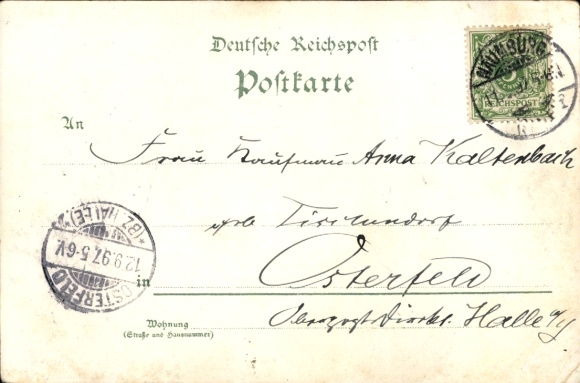 Deutsche Reichspost
Postkarte
NAUMBURG
REICHSPOST
An
Frau Kaufmann Anna Kaltenbach
Tischendorf
in Osterfeld
Halle a/S
Wohnung
(Straße und Hausnummer)
OSTERFELD
12.9.97.5-6V.
*(BZ. HALLE)*